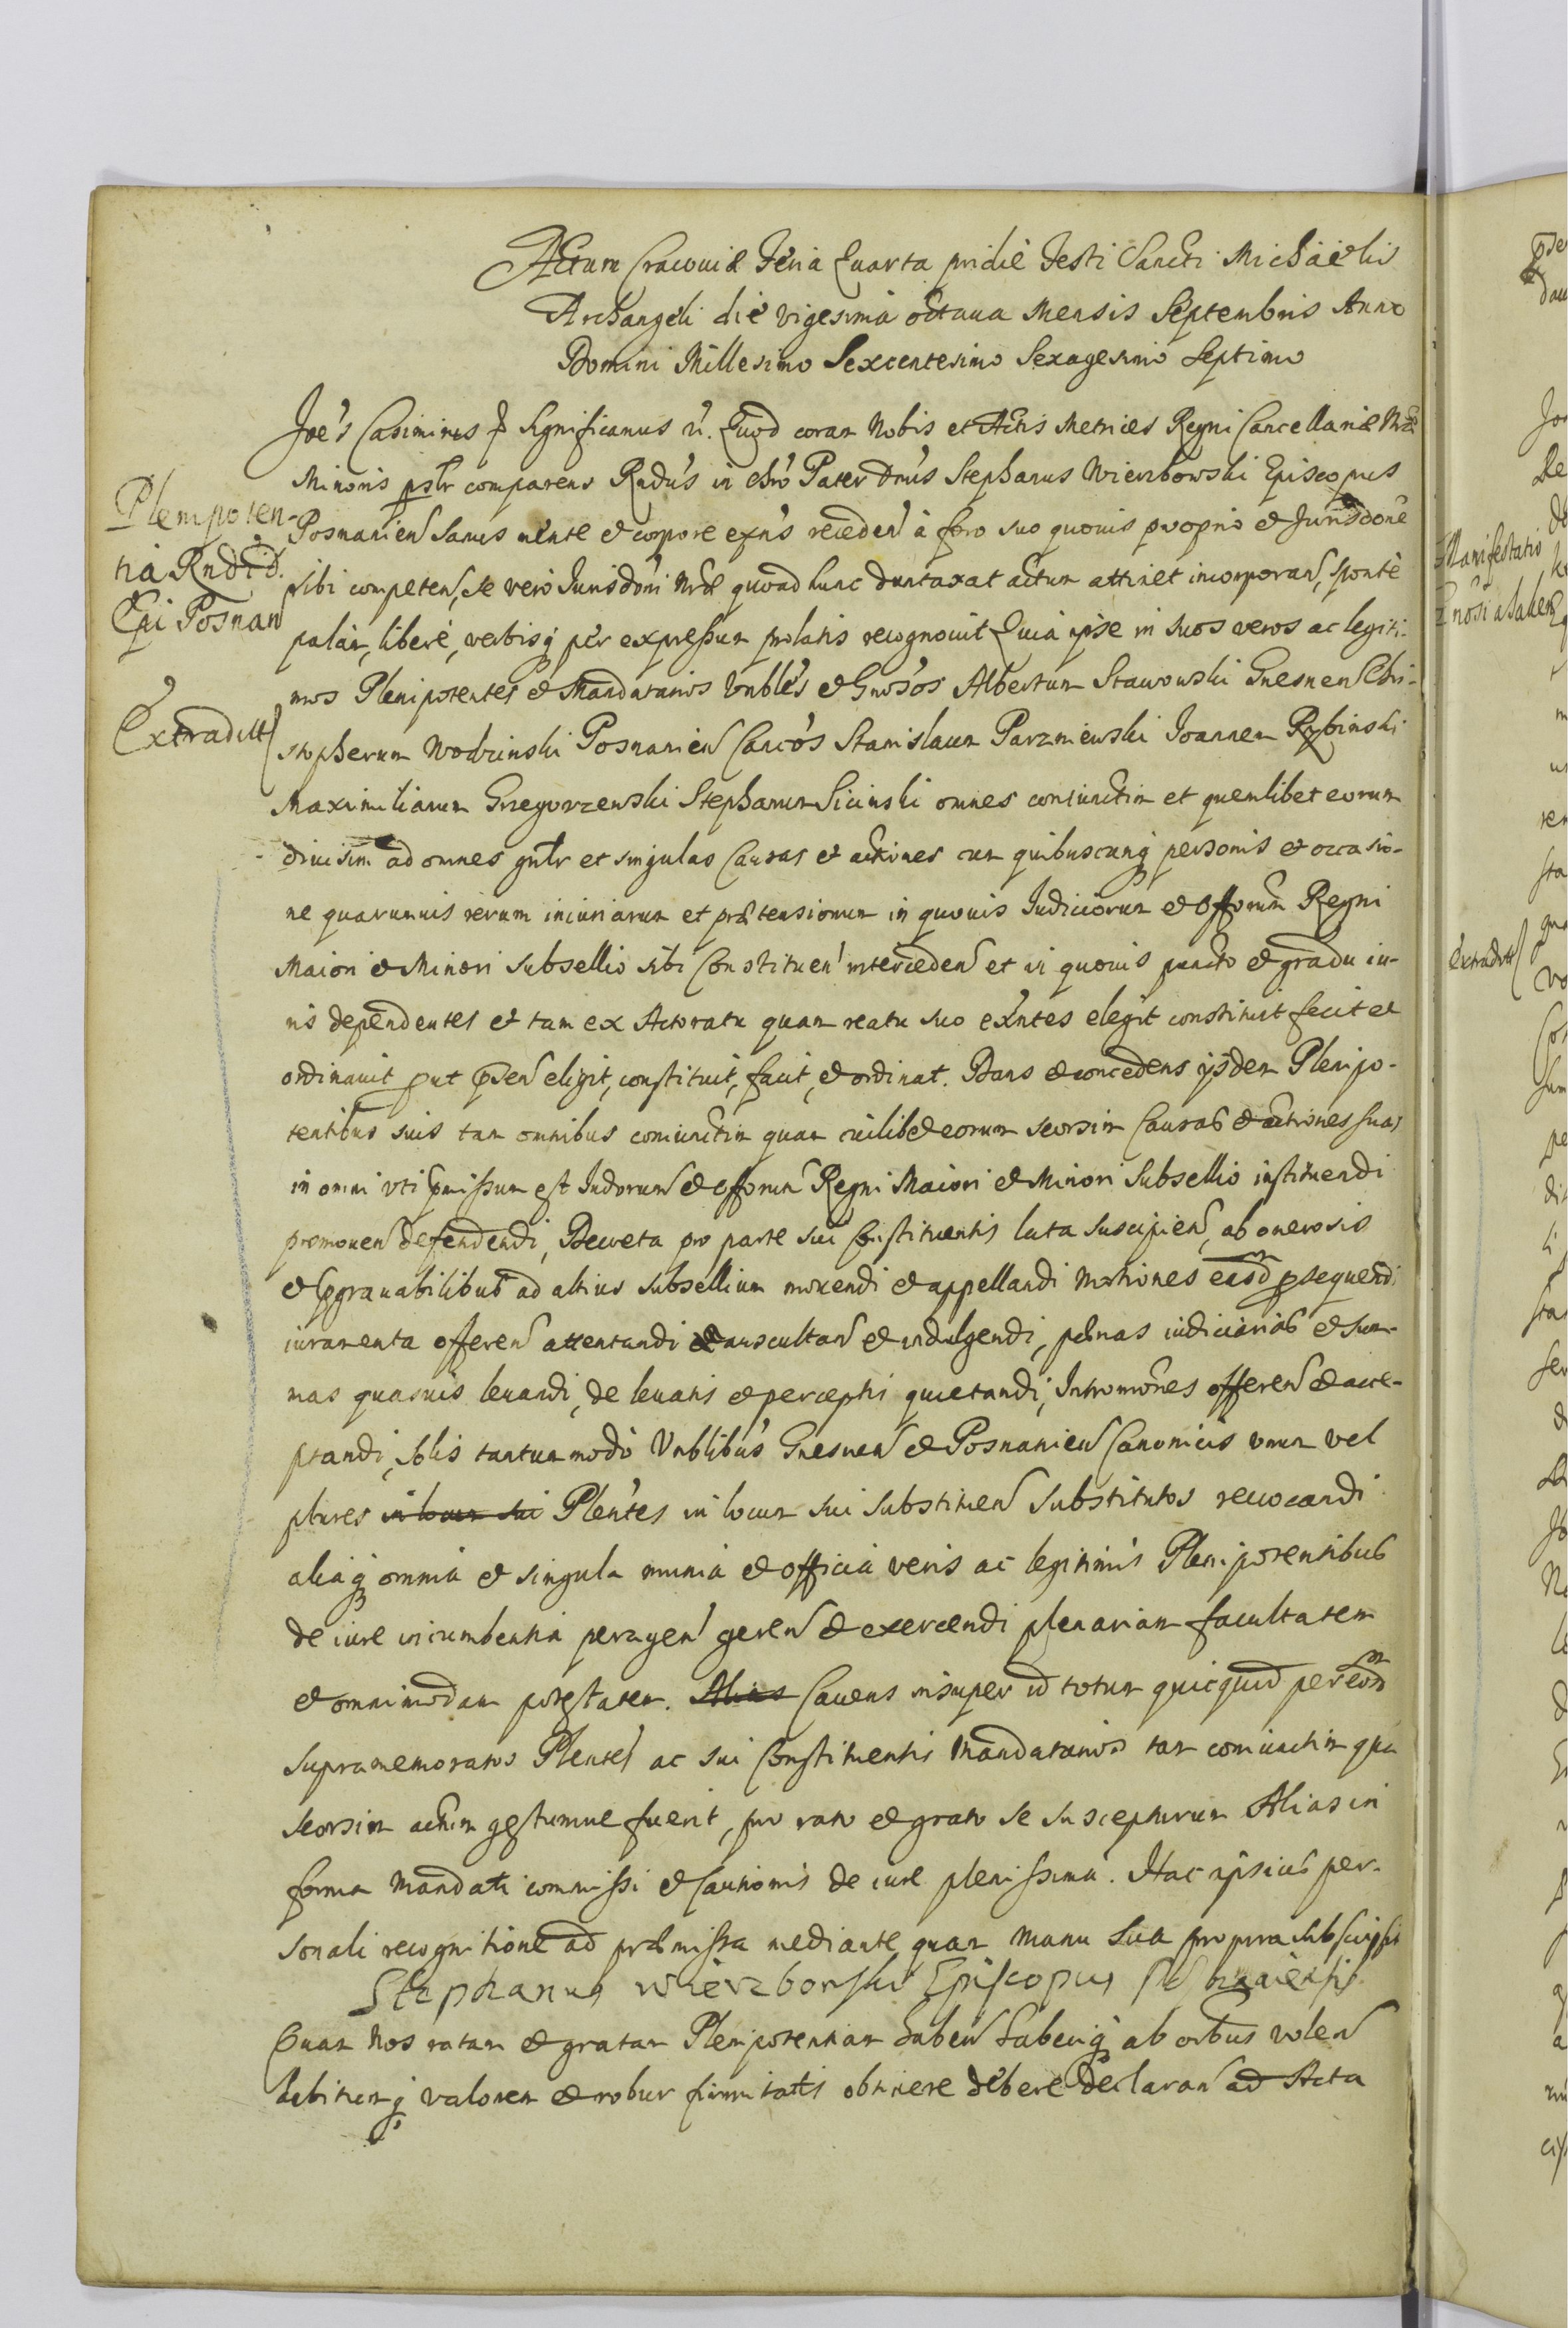 Actum Cracouiæ Feria Quarta pridie Festi Sancti Michaëlis
Archangeli die vigesima octaua Mensis Septembris Anno
Domini Millesimo Sexcentesimo Sexagesimo Septimo
Joe's Casimirus Significamus Quod coram Nobis et Actis Metrices Regni Cancellariæ Nræ
Minoris pslr comparens Rndus in chro Pater Dnus Stephanus Wierzbowski Episcopus
Plenipoten-
tia Rndi d.
Epi Posnan
Posnanien sanus mente et corpore exns receden à foro suo quouis proprio et Jurisdone
sibi competen, se vero Jurisdoni Nræ quoad hunc duntaxat actum attinet incorporan, sponte
palam, libere, verbisq per expressum prolatis recognouit Quia ipse in suos veros ac legiti-
mos Plenipotentes et Mandatarios Vnbles et Gnosos Albertum Stawowski Gnesnen Chri-
Extradltt
stopherum Wodzinski Posnanien Cancos Stanislaum Parzniewski Joannem Rybinski
Maximilianum Grzegorzewski Stephanum Sicinski omnes coniunctim et quemlibet eorum
diuisim ad omnes gnlr et singulas Causas et actiones cum quibuscunq personis et occasio-
ne quarumuis rerum iniuriarum et prætensionum in quouis Judiciorum et Offorum Regni
Maiori et Minori subsellio sibi Constituen interceden et in quouis puncto et gradu iu-
ris dependentes et tam ex Actoratu quam reatu suo exntes elegit constituit fecit et
ordinauit put psen eligit, constituit, facit, et ordinat. Dans et concedens ijsdem Plenipo-
tentibus suis tam omnibus coniunctim quam cuilibet eorum seorsim Causas et actiones suas
in omni vti pmissum est Judorum et offorum Regni Maiori et Minori Subsellio instituendi
promouen defendendi, Decreta pro parte sui Constituentis lata suscipien, ab onerosis
et pgrauabilibus ad altius subsellium mouendi et appellandi Motiones easd psequendi
iuramenta offeren attentandi et auscultan et indulgendi, poenas iudiciarias et sum-
mas quasuis leuandi, de leuatis et perceptis quietandi, Intromones offeren et acce-
ptandi, solis tantummodo Vnblibus Gnesnen et Posnanien Canonicis vnum vel
plures in locum sui Plentes in locum sui substituen substitutos reuocandi
aliaq omnia et singula munia et officia veris ac legitimis Plenipotentibus
de iure incumbentia peragen geren et exercendi plenariam facultatem
et omnimodam potestatem. Alias Cauens insuper id totum quicquid per eosd
supramemoratos Plentes ac sui Constituentis Mandatarios tam coniunctim qua
seorsim actum gestumue fuerit, pro rato et grato se suscepturum Alias in
forma Mandati commissi et Cautionis de iure plenissima. Hac ipsius per-
sonali recognitione ad præmissa mediante quam manu sua propria subscripsit
Stephanus Wierzbowski Episcopus Posnaniensis
Quam Nos ratam et gratam Plenipotentiam haben haberiq ab oibus volen
debitumq valorem et robur firmitatis obtinere debere declaran ad Acta
Manifestatio